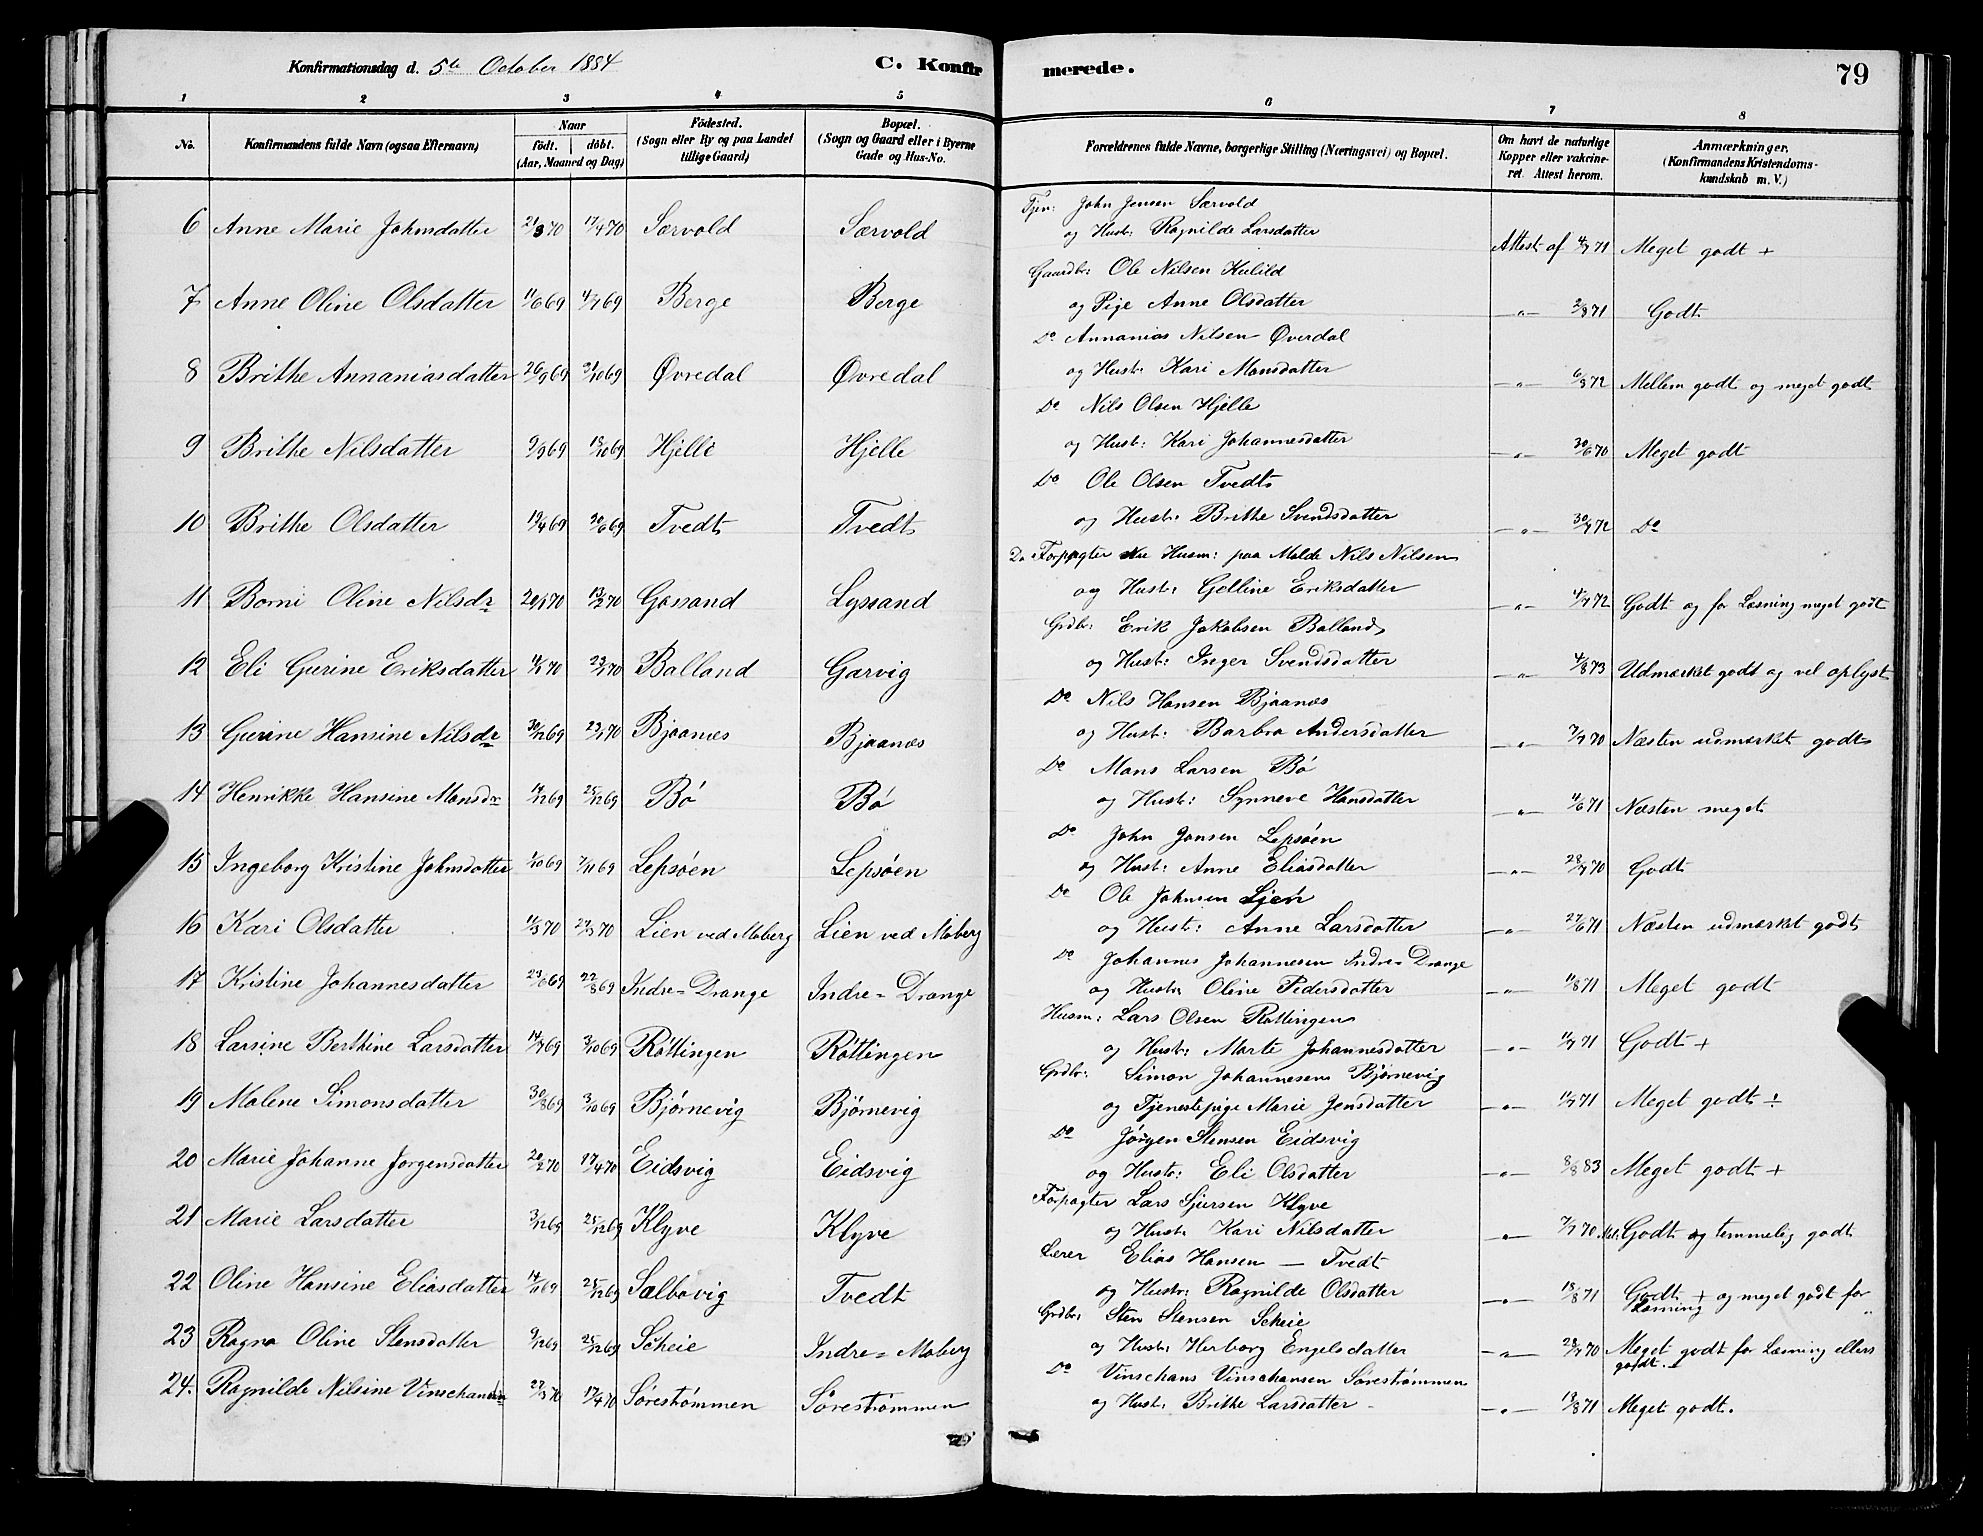 Konfirmationsdag d. 5te October 1884
C. Konfirmerede.
79
1 2 3 4 5 6 7 8
No. Konfirmandens fulde Navn (ogsaa Efternavn) Naar födt. döbt. (Aar, Maaned og Dag) Födested. (Sogn eller By og paa Landet tillige Gaard) Bopæl. (Sogn og Gaard eller i Byerne Gade og Hus-No. Forældrenes fulde Navne, borgerlige Stilling (Næringsvei) og Bopæl. Om havt de naturlige Kopper eller vakcineret. Attest herom. Anmærkninger. (Konfirmandens Kristendomskundskab m. V.)
Tjen: John Jensen Særvold
6 Anne Marie Johnsdatter 21/3 70 17/4 70 Særvold Særvold og Hust: Ragnilde Larsdatter Attest af 4/7 71 Meget godt +
Gaardbr: Ole Nilsen Kulild
7 Anne Oline Olsdatter 11/6 69 4/7 69 Berge Berge og Pige Anne Olsdatter -"- 2/8 71 Godt
Do Annanias Nilsen Øverdal
8 Brithe Annaniasdatter 26/9 69 31/10 69 Øvredal Øvredal og Hust: Kari Monsdatter -"- 6/8 72 Mellem godt og meget godt
Do Nils Olsen Hjelle
9 Brithe Nilsdatter 9/9 69 13/10 69 Hjelle Hjelle og Hust: Kari Johannesdatter -"- 30/6 70 Meget godt
Do Ole Olsen Tvedt
10 Brithe Olsdatter 19/4 69 30/6 69 Tvedt Tvedt og Hust: Brithe Svendsdatter -"- 30/7 72 Do
Do Forpagter Husm: paa Molde Nils Nilsen
11 Borni Oline Nilsdr 20/1 70 13/2 70 Gassand Lyssand og Hust: Golline Eriksdatter -"- 4/7 72 Godt og for Læsning meget godt
Grdbr: Erik Jakobsen Balland
12 Eli Gurine Eriksdatter 4/1 70 23/1 70 Balland Garvig og Hust: Inger Svendsdatter -"- 4/8 73 Udmærket godt og vel oplyst
Do Nils Hansen Bjaanæs
13 Gurine Hansine Nilsdr 30/12 69 23/1 70 Bjaanæs Bjaanæs og Hust: Barbro Andersdatter -"- 7/7 70 Næsten udmærket godt
Do Mons Larsen Bö
14 Henrikke Hansine Monsdr 17/12 69 25/12 69 Bö Bö og Hust: Synneve Hansdatter -"- 4/6 71 Næsten meget
Do John Jonsen Lepsöen
15 Ingeborg Kristine Johnsdatter 1/10 69 7/11 69 Lepsöen Lepsöen og Hust: Anne Eliasdatter -"- 28/7 70 Godt
Do Ole Johnsen Ljen
16 Kari Olsdatter 11/3 70 27/3 70 Lien ved Moberg Lien ved Moberg og Hust: Anne Larsdatter -"- 27/6 71 Næsten udmærket godt
Do Johannes Johannesen Indre-Drange
17 Kristine Johannesdatter 23/6 69 22/8 69 Indre-Drange Indre-Drange og Hustr: Oline Pedersdatter -"- 11/8 71 Meget godt
Husm: Lars Olsen Röttingen
18 Larsine Berthine Larsdatter 14/9 69 3/10 69 Röttingen Röttingen og Hustr: Marte Johannesdatter -"- 11/7 71 Godt +
Grdbr: Simon Johannesen Björnevig
19 Malene Simonsdatter 30/8 69 3/10 69 Björnevig Björnevig og Tjenestepige Marie Jensdatter -"- 11/7 71 Meget godt ÷
Do Jörgen Stensen Eidsvig
20 Marie Johanne Jörgensdatter 20/2 70 17/4 70 Eidsvig Eidsvig og Hustr: Eli Olsdatter -"- 8/8 83 Meget godt +
Forpagter Lars Sjursen Klyve
21 Marie Larsdatter 3/12 69 25/12 69 Klyve Klyve og Hustr: Kari Nilsdatter -"- 7/7 70 Godt og temmelig godt
Lærer Elias Hansen - Tvedt
22 Oline Hansine Eliasdatter 14/11 69 25/12 69 Salbovig Tvedt og Hustr: Ragnilde Olsdatter -"- 18/8 71 Godt + og meget godt for Læsning
Grdbr: Sten Stensen Scheie
23 Ragna Oline Stensdatter 9/12 69 25/12 69 Scheie Indre-Moberg og Hustr: Herborg Engelsdatter -"- 28/7 70 Meget godt for Læsning ellers godt.
Do Vinschans Vinschansen Sörestrømmen
24. Ragnilde Nilsine Vinschansdr 27/3 70 17/4 70 Sörestrømmen Sörestrømmen og Hustr: Brithe Larsdatter -"- 13/8 71 Meget godt.